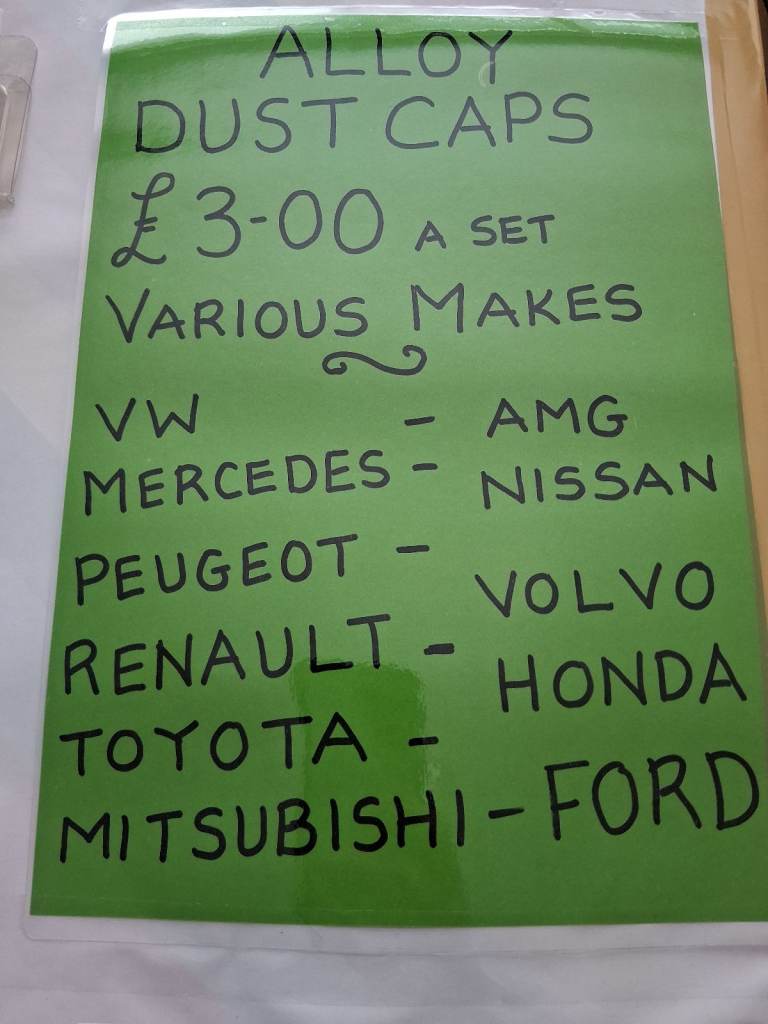 ALLOY
DUST CAPS
£3-00 A SET
VARIOUS MAKES
VW - AMG
MERCEDES - NISSAN
PEUGEOT - VOLVO
RENAULT - HONDA
TOYOTA -
MITSUBISHI - FORD